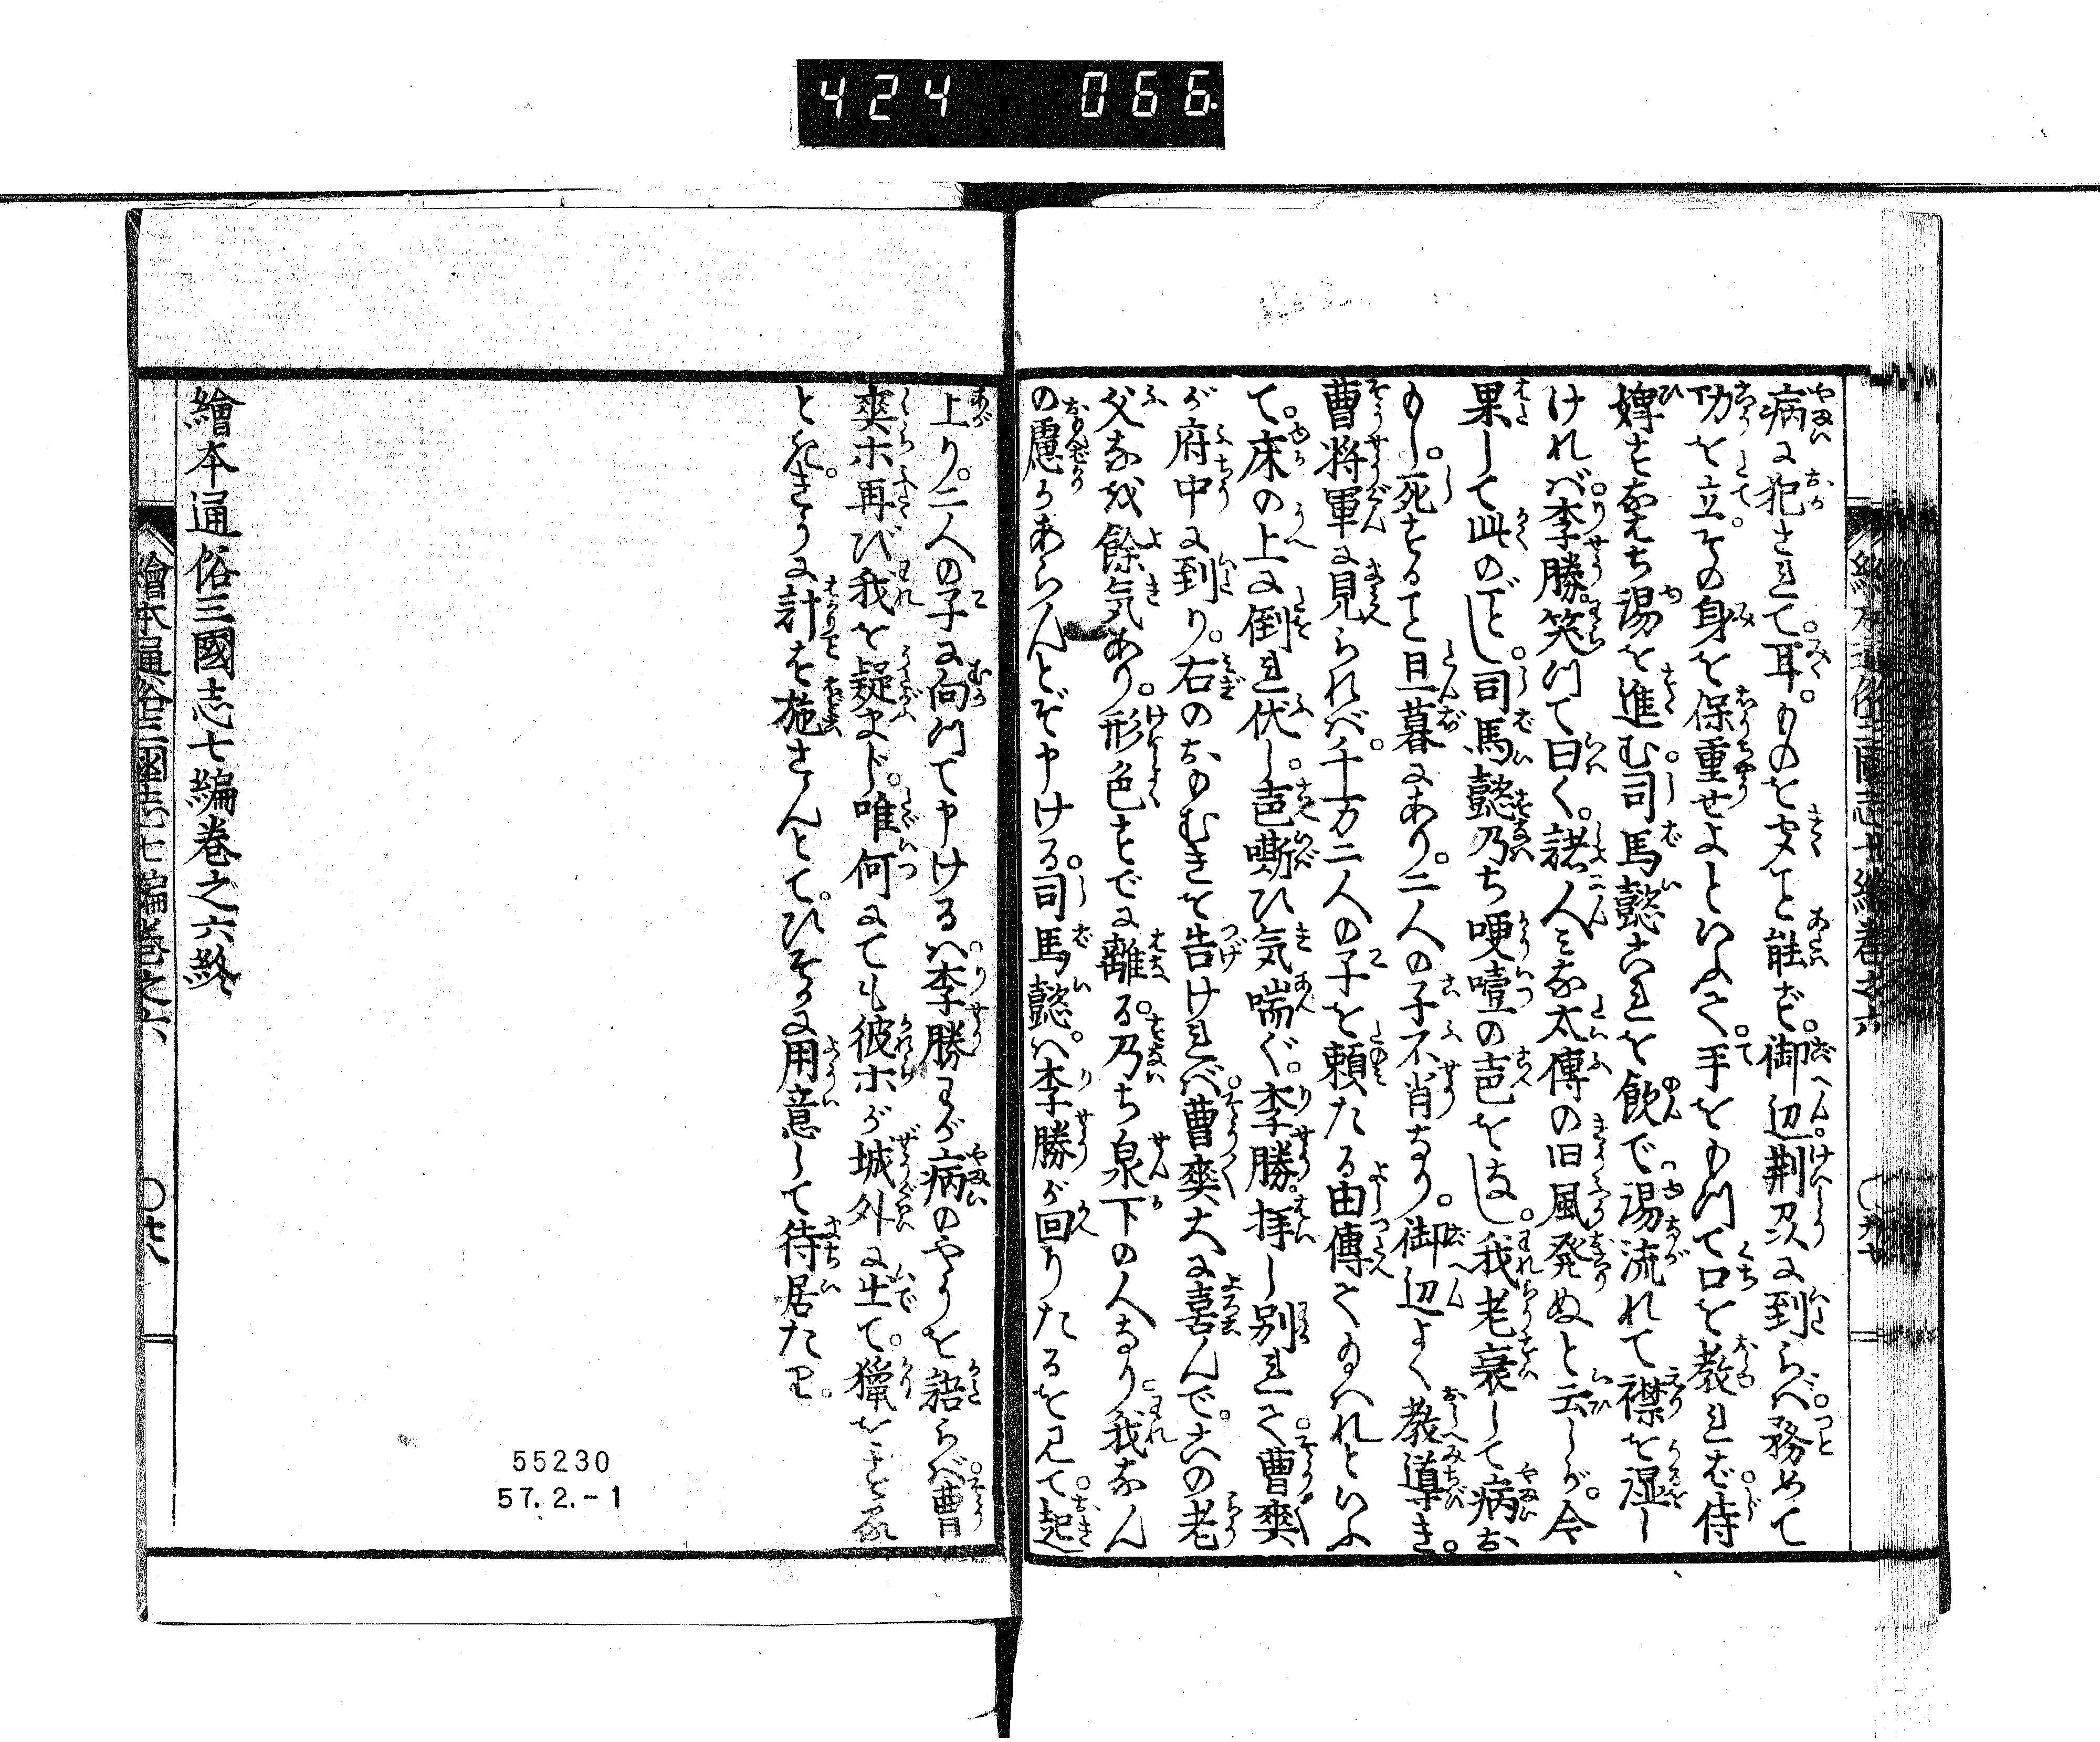 424 066
病に犯されて。耳。ものを聞こと能ず。御辺荊州に到らば。務めて
功を立。その身を保重せよといふて。手をもつて口を教れば。侍
婢すなはち湯を進む。司馬懿これを飲で。湯流れて襟を湿し
ければ。李勝。笑つて曰く。諸人みな太傅の旧風発ぬと云しが。今
果して此のごとし。司馬懿乃ち哽噎の声をなし。我老衰して病お
もし。死すること旦暮にあり。二人の子不肖なり。御辺よく教導き。
曹将軍に見られば。千万二人の子を頼たる由傳へて給はれといふ
て。床の上に倒れ伏し。声嘶ひ気喘ぐ。李勝。拝し別れて。曹爽
が府中に到り。右のおもむきを告ければ。曹爽大に喜んで。この老
父なを餘気あり。形色すでに離る。乃ち泉下の人なり。我なん
の慮りかあらんとぞ申ける。司馬懿。は李勝が回りたるを見て。起
上り。二人の子に向つて申けるは。李勝わが病のやうを語らば。曹
爽ホ再び我を疑まじ。唯何にても彼ホが城外に出て。獵を
とき。きうに計を施さんとて。ひそかに用意して待居たり。
繪本通俗三國志七編巻之六終
繪本通俗三國志七編巻之六
55230
57.2.-1